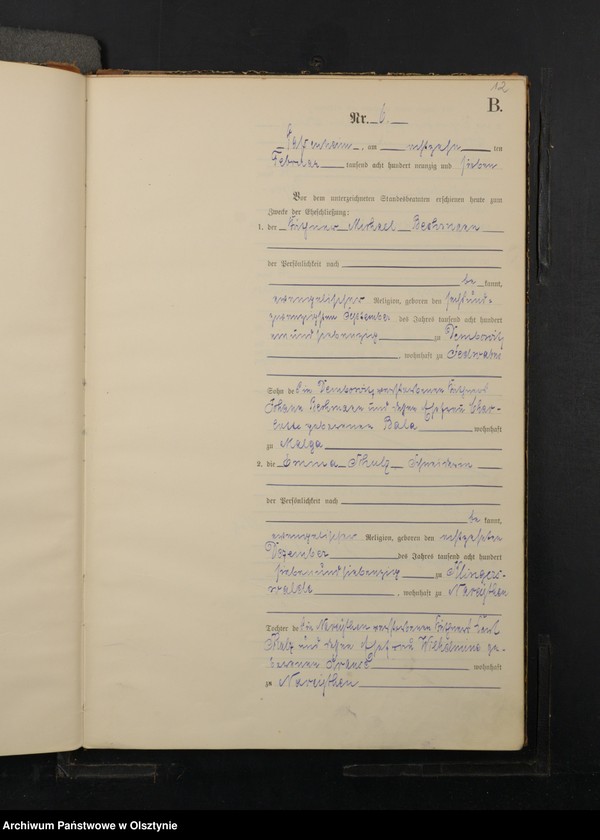 12
B.
Nr. 6.
am achtzehn ten
Februar tausend acht hundert neunzig und sieben
Vor dem unterzeichneten Standesbeamten erschienen heute zum
Zwecke der Eheschließung:
1. der Käthner Michael
der Persönlichkeit nach
be kannt,
evangelischer Religion, geboren den sechsund-
zwanzigsten September des Jahres tausend acht hundert
einundsiebenzig zu
, wohnhaft zu Jedwabno
Sohn de verstorbenen Käthners
Johann und dessen Ehefrau Char-
lotte geborenen Bala wohnhaft
zu Malga
2. die Emma Schulz Schneiderin
der Persönlichkeit nach
be kannt,
evangelischer Religion, geboren den achtzehnten
Dezember des Jahres tausend acht hundert
siebenundsiebenzig zu
walde , wohnhaft zu Nareythen
Tochter de in Nareythen verstorbenen Käthners
und dessen Ehefrau Wilhelmine ge-
borenen wohnhaft
zu Nareythen
Archiwum Państwowe w Olsztynie